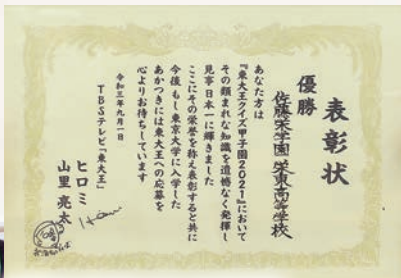 表彰状
優勝
佐藤栄学園 栄東高等学校
あなた方は
『東大王クイズ甲子園2021』において
その類まれな知識を遺憾なく発揮し
見事日本一に輝きました
ここにその栄誉を称え表彰すると共に
今後 もし東京大学に入学した
あかつきには東大王への応募を
心よりお待ちしています
令和三年九月一日
TBSテレビ「東大王」
ヒロミ
山里亮太